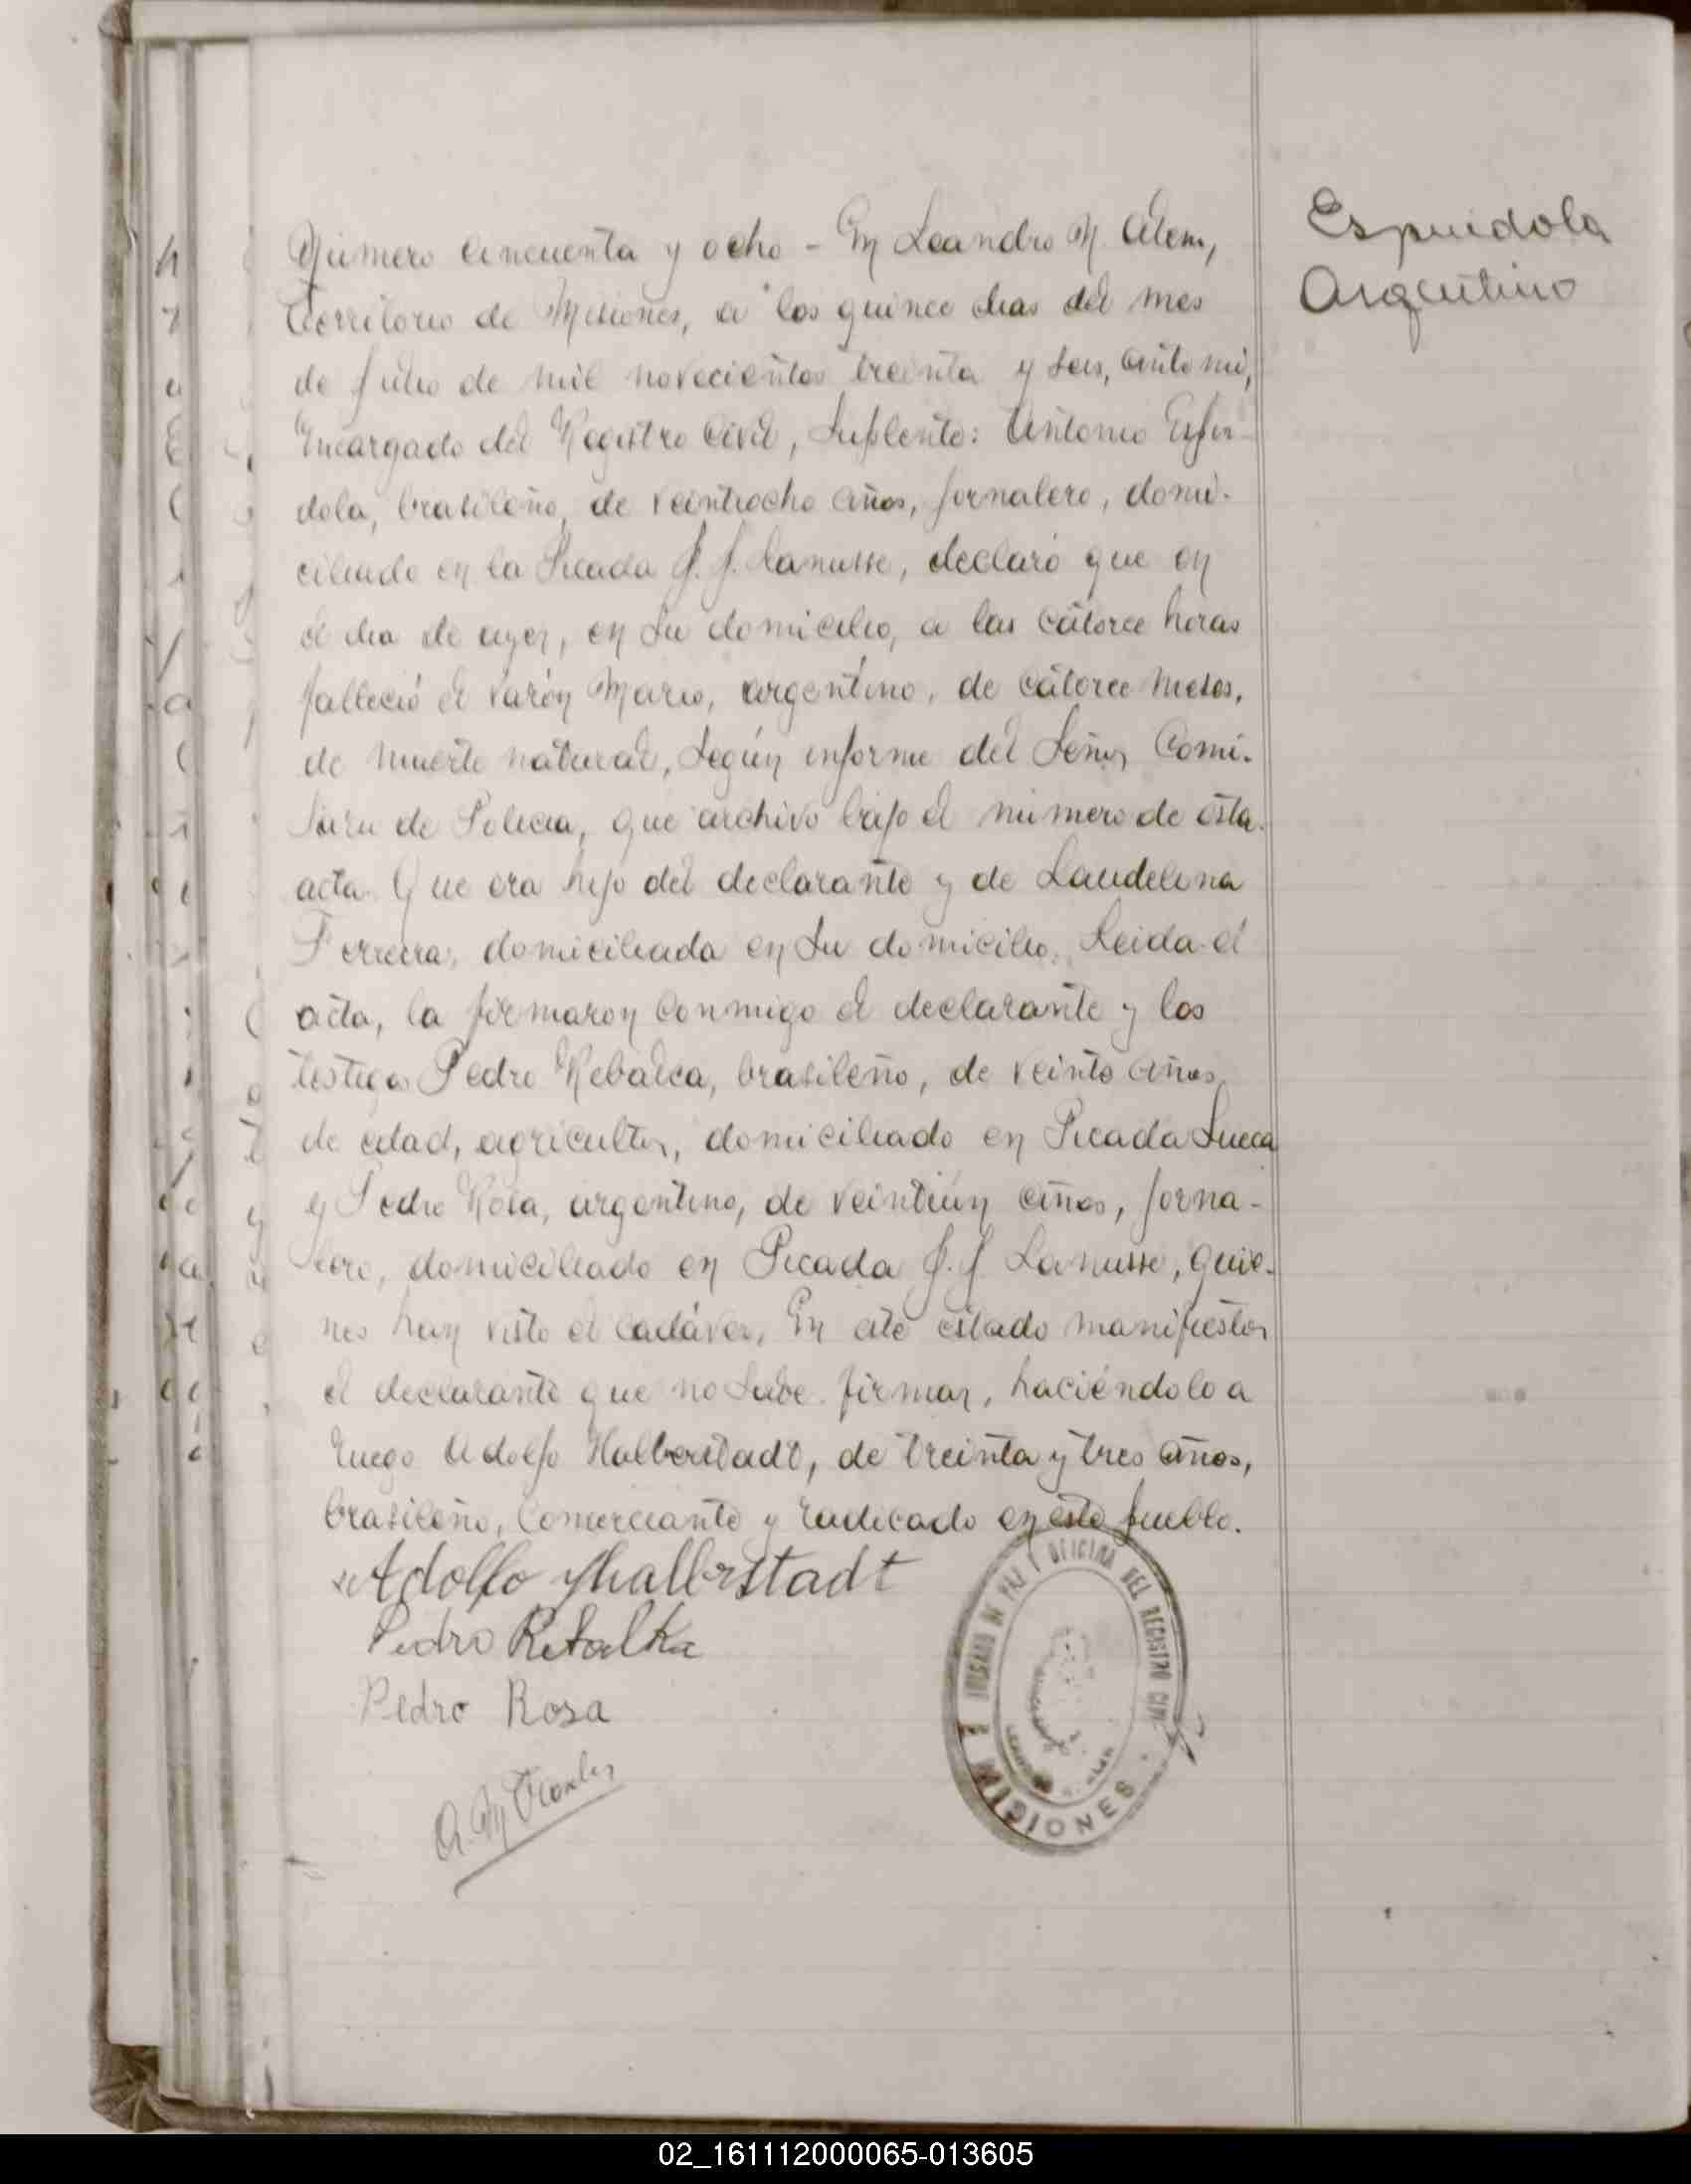 Número cincuenta y ocho - En Leandro N. Alem,
Territorio de Misiones, a los quince dias del mes
de Julio de mil novecientos treinta y seis, ante mi,
Encargado del Registro Civil, Suplente: Antonio Espin-
dola, brasileño, de veintiocho años, jornalero, domi-
ciliado en la Picada J. J. Lanusse, declaró que en
el dia de ayer, en su domicilio, a las catorce horas
falleció el varón Mario, argentino, de catorce meses,
de muerte natural, según informe del Señor Comi-
sario de Policia, que archivo bajo el número de esta
acta. Que era hijo del declarante y de Laudelina
Ferreira, domiciliada en su domicilio. Leida el
acta, la firmaron conmigo el declarante y los
testigos Pedro Rebalca, brasileño, de veinte años
de edad, agricultor, domiciliado en Picada Sueca
y Pedro Rosa, argentino, de veintiún años, jorna-
lero, domiciliado en Picada J. J. Lanusse, quie-
nes han visto el cadáver. En este estado manifiesta
el declarante que no sabe firmar, haciéndolo a
ruego Adolfo Halberstadt, de treinta y tres años,
brasileño, comerciante y radicado en este pueblo.
Adolfo Halberstadt
Pedro
Pedro Rosa
JUZGADO DE PAZ Y OFICINA DEL REGISTRO CIVIL
MISIONES
Espindola
Argentino
02_161112000065-013605